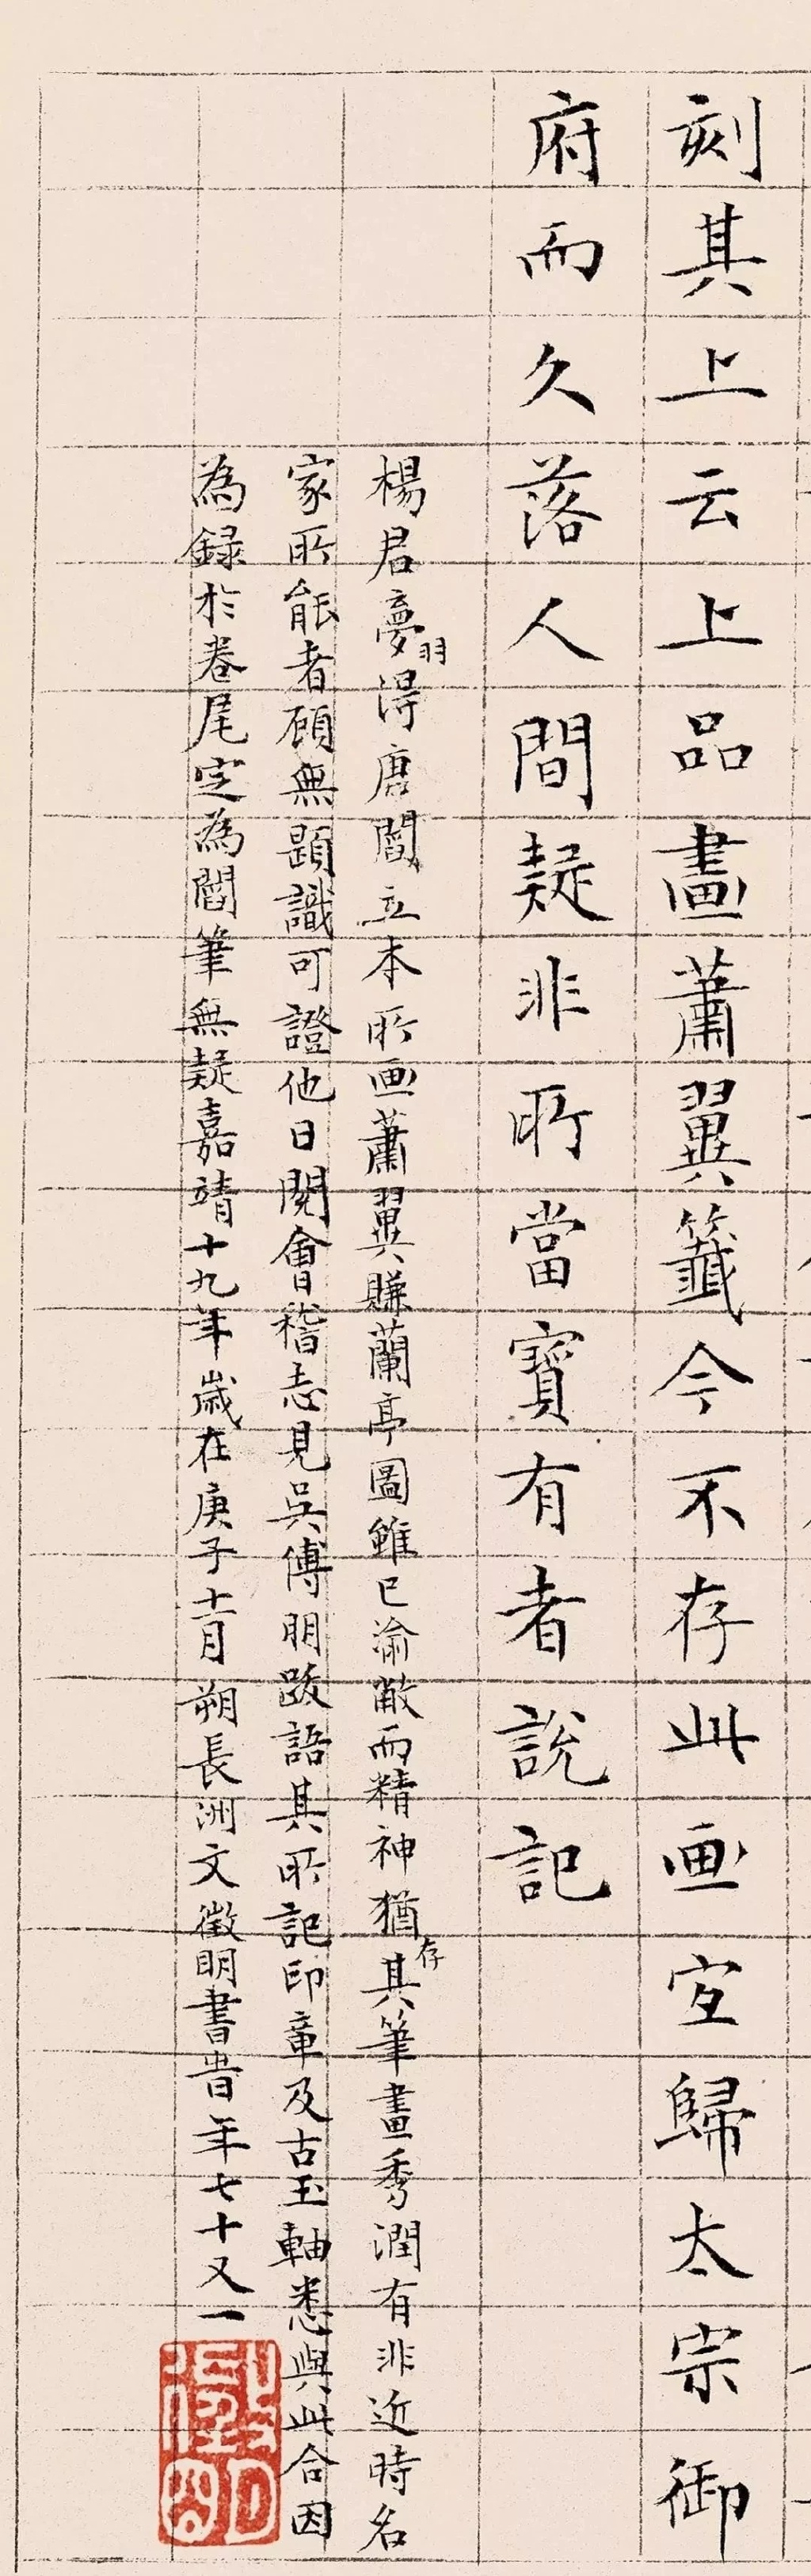 刻其上云上品畫蕭翼籤今不存此画宜歸太宗御
府而久落人間疑非所當寶有者說記
楊君夢羽得唐閻立本所画蕭翼賺蘭亭圖雖已渝敝而精神猶存其筆畫秀潤有非近時名
家所能者顧無題識可證他日閱會稽志見吳傅朋跋語其所記印章及古玉軸悉與此合因
為錄於卷尾定為閻筆無疑嘉靖十九年歲在庚子十一月朔長洲文徵明書旹年七十又一
徵明